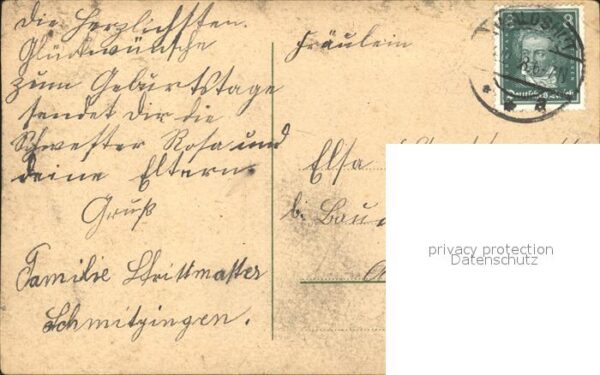 die Herzlichsten.
Glückwünsche
zum Geburtstage
sendet Dir die
Schwester Rosa und
deine Eltern
Gruß
Familie Strittmatter
Schmitzingen.
Fräulein
Elsa
b.
8
Deutsches Reich
WALDSHUT
a
privacy protection
Datenschutz